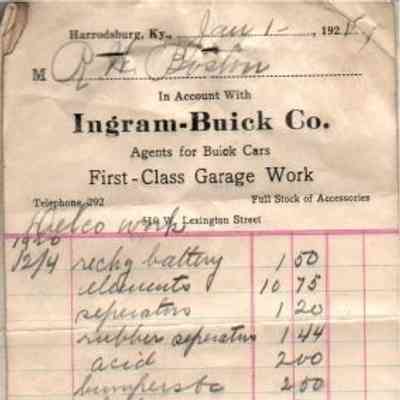 Harrodsburg, Ky., Jan 1- , 192
M R H. Boston
In Account With
Ingram-Buick Co.
Agents for Buick Cars
First-Class Garage Work
Telephone 292 Full Stock of Accessories
519 W. Lexington Street
Delco work
1920
12/4 rechg battery 1 50
elements 10 75
seperators 1 20
rubber seperators 1 44
acid 2 00
2 50